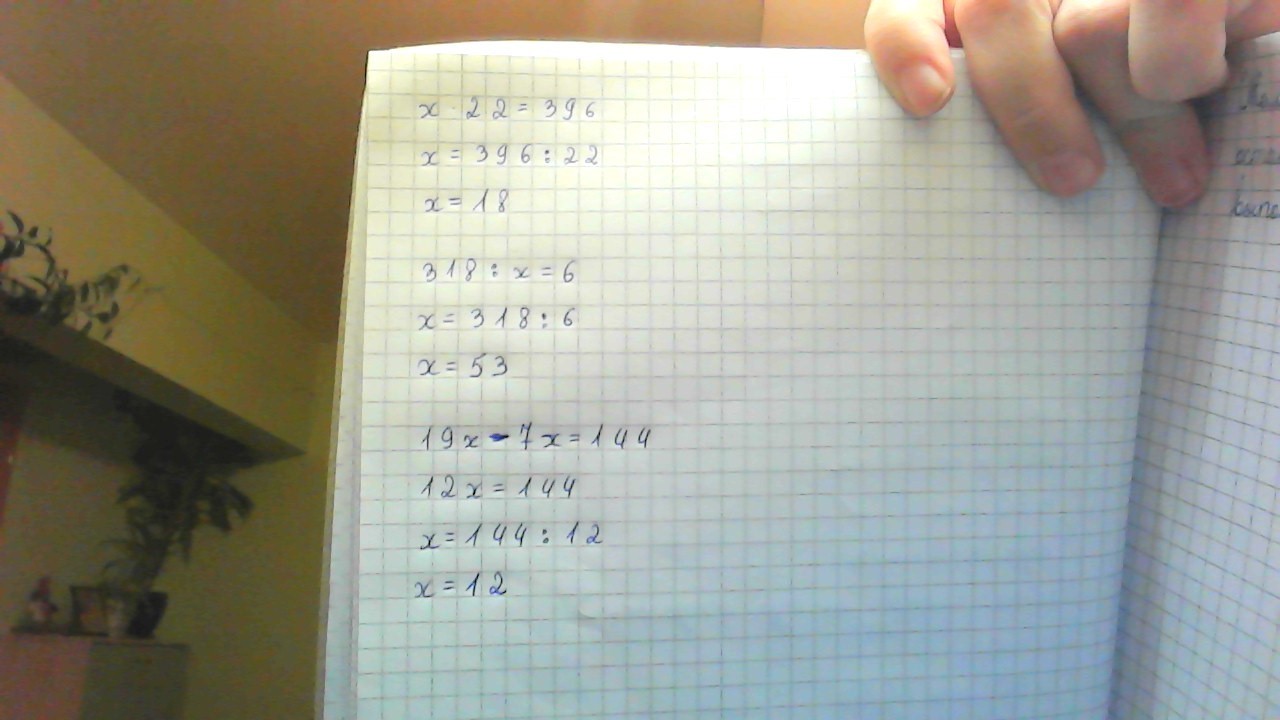 x · 22 = 396
x = 396 : 22
x = 18
318 : x = 6
x = 318 : 6
x = 53
19x - 7x = 144
12x = 144
x = 144 : 12
x = 12